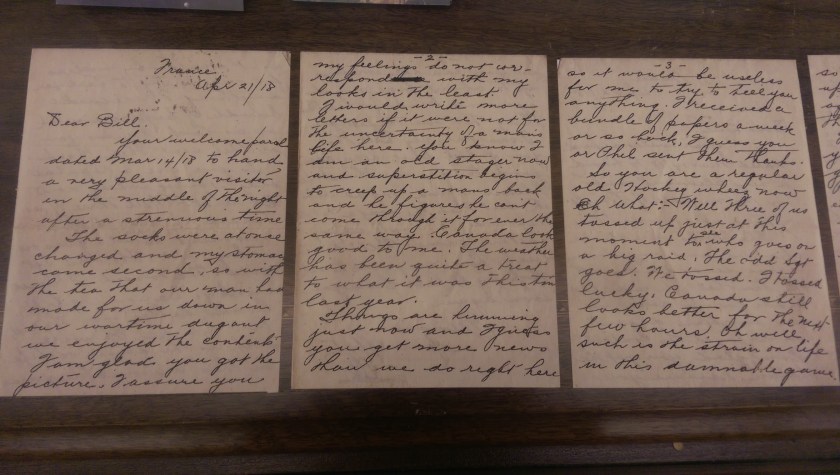 France
Apr 21/18
Dear Bill.
your welcome parcel
dated Mar 14/18 to hand
a very pleasant visitor
in the middle of the night
after a strenuous time
The socks were at once
changed and my stomac
came second, so with
the tea that our man had
made for us down in
our wartime dugout
we enjoyed the contents
I am glad you got the
picture. I assure you
-2-
my feelings do not cor-
respond with my
looks in the least.
I would write more
letters if it were not for
the uncertainty of a mans
life here. You know I
am an old stager now
and superstition begins
to creep up a mans back
and he figures he can't
come through it for ever the
same way. Canada look
good to me. The weather
has been quite a treat
to what it was this time
last year.
Things are humming
just now and I guess
you get more news
than we do right here
-3-
so it would be useless
for me to try to tell you
anything. I received a
bundle of papers a week
or so back, I guess you
or Phil sent them thanks.
So you are a regular
old Hockey wheez now
Eh what:- Well three of us
tossed up just at this
moment to see who goes on
a big raid. The odd Sgt
goes. We tossed. I tossed
lucky. Canada still
looks better for the next
few hours. Oh well
such is the strain on life
in this damnable game.